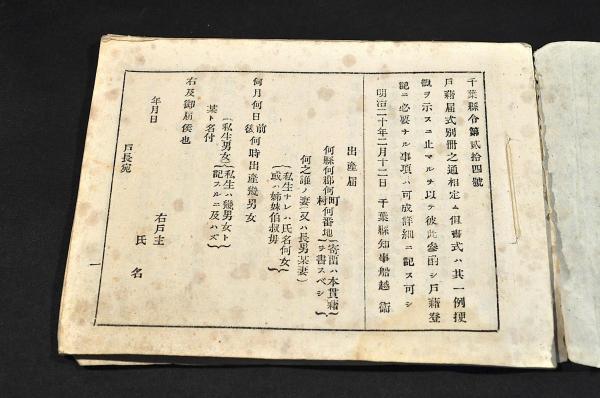 千葉縣令第貳拾四號
戸籍届式別冊之通相定ム但書式ハ其一例梗
概ヲ示スニ止マルヲ以テ彼此參酌シ戸籍登
記ニ必要ナル事項ハ可成詳細ニ記ス可シ
明治二十年二月十二日 千葉縣知事船越衞
出産届
何縣何郡何町村何番地(寄留ハ本貫籍ヲ書スベシ)
何之誰ノ妻(又ハ長男某妻)
(私生ナレハ氏名何女或ハ姉妹伯叔母)
何月何日前後何時出産幾男女
(私生男女)(私生ハ幾男女ト記スルニ及ハズ)
某ト名付
右及御届候也
年月日
右戸主
氏名
戸長宛
一